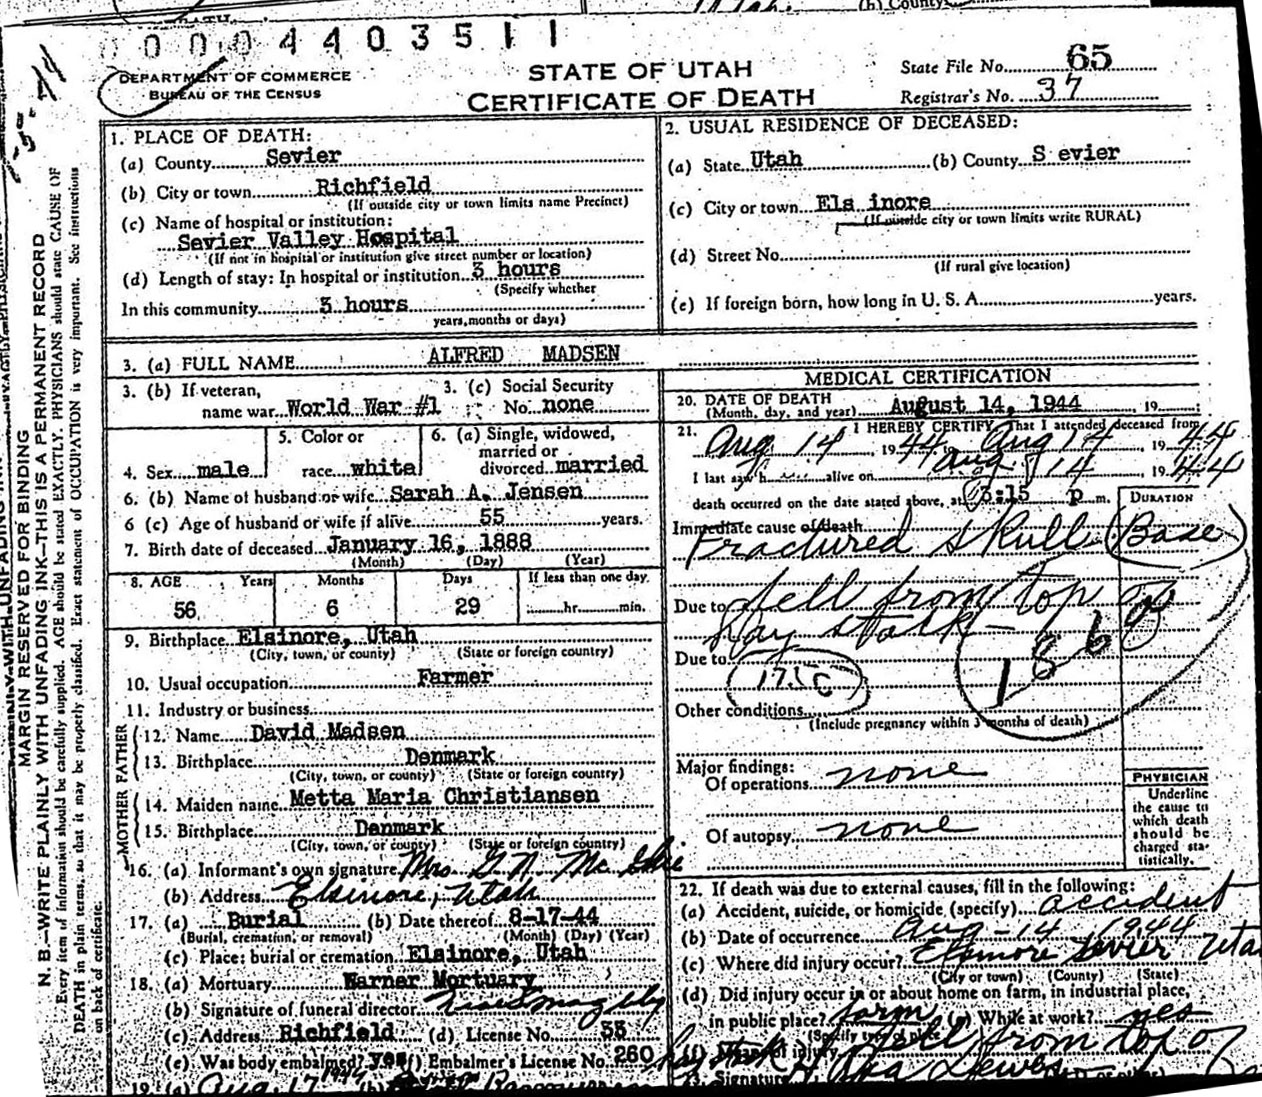 (b) County
0 0 0 4 4 0 3 5 1 1
DEPARTMENT OF COMMERCE
BUREAU OF THE CENSUS
STATE OF UTAH
CERTIFICATE OF DEATH
State File No. 65
Registrar's No. 37
MARGIN RESERVED FOR BINDING
N. B.—WRITE PLAINLY WITH UNFADING INK—THIS IS A PERMANENT RECORD
Every item of information should be carefully supplied. AGE should be stated EXACTLY. PHYSICIANS should state CAUSE OF
DEATH in plain terms, so that it may be properly classified. Exact statement of OCCUPATION is very important. See instructions
on back of certificate.
1. PLACE OF DEATH:
(a) County Sevier
(b) City or town Richfield
(If outside city or town limits name Precinct)
(c) Name of hospital or institution:
Sevier Valley Hospital
(If not in hospital or institution give street number or location)
(d) Length of stay: In hospital or institution 3 hours
(Specify whether
In this community 3 hours
years, months or days)
2. USUAL RESIDENCE OF DECEASED:
(a) State Utah (b) County S evier
(c) City or town Els inore
(If outside city or town limits write RURAL)
(d) Street No.
(If rural give location)
(e) If foreign born, how long in U. S. A. years.
3. (a) FULL NAME ALFRED MADSEN
3. (b) If veteran, 3. (c) Social Security
name war World War #1 No. none
4. Sex male 5. Color or race white 6. (a) Single, widowed, married or divorced married
6. (b) Name of husband or wife Sarah A. Jensen
6 (c) Age of husband or wife if alive 55 years.
7. Birth date of deceased January 16, 1888
(Month) (Day) (Year)
8. AGE Years Months Days If less than one day
56 6 29 hr. min.
9. Birthplace Elsinore, Utah
(City, town, or county) (State or foreign country)
10. Usual occupation Farmer
11. Industry or business
FATHER
12. Name David Madsen
13. Birthplace Denmark
(City, town, or county) (State or foreign country)
MOTHER
14. Maiden name Metta Maria Christiansen
15. Birthplace Denmark
(City, town, or county) (State or foreign country)
16. (a) Informant's own signature Mrs. G. N.
(b) Address Elsinore, Utah
17. (a) Burial (b) Date thereof 8-17-44
(Burial, cremation, or removal) (Month) (Day) (Year)
(c) Place: burial or cremation Elsinore, Utah
18. (a) Mortuary Warner Mortuary
(b) Signature of funeral director
(c) Address Richfield (d) License No.
(e) Was body embalmed? yes (f) Embalmer's License No. 260
19. (a) Aug. 17 1944 (b)
MEDICAL CERTIFICATION
20. DATE OF DEATH
(Month, day, and year) August 14, 1944, 19
21. I HEREBY CERTIFY, That I attended deceased from
Aug 14, 1944 to Aug 14, 1944
I last saw h alive on Aug 14, 1944
death occurred on the date stated above, at :15 p m.
DURATION
Immediate cause of death
Fractured skull (Base)
Due to fell from top of
hay stack—top
Due to
186
171C
Other conditions
(Include pregnancy within 3 months of death)
Major findings:
Of operations none
Of autopsy none
PHYSICIAN
Underline
the cause to
which death
should be
charged sta-
tistically.
22. If death was due to external causes, fill in the following:
(a) Accident, suicide, or homicide (specify) accident
(b) Date of occurrence Aug-14 1944
(c) Where did injury occur? Elsinore Sevier Utah
(City or town) (County) (State)
(d) Did injury occur in or about home on farm, in industrial place,
in public place? farm (e) While at work? yes
(f) Means of injury fell from top of
hay stack
23. Signature